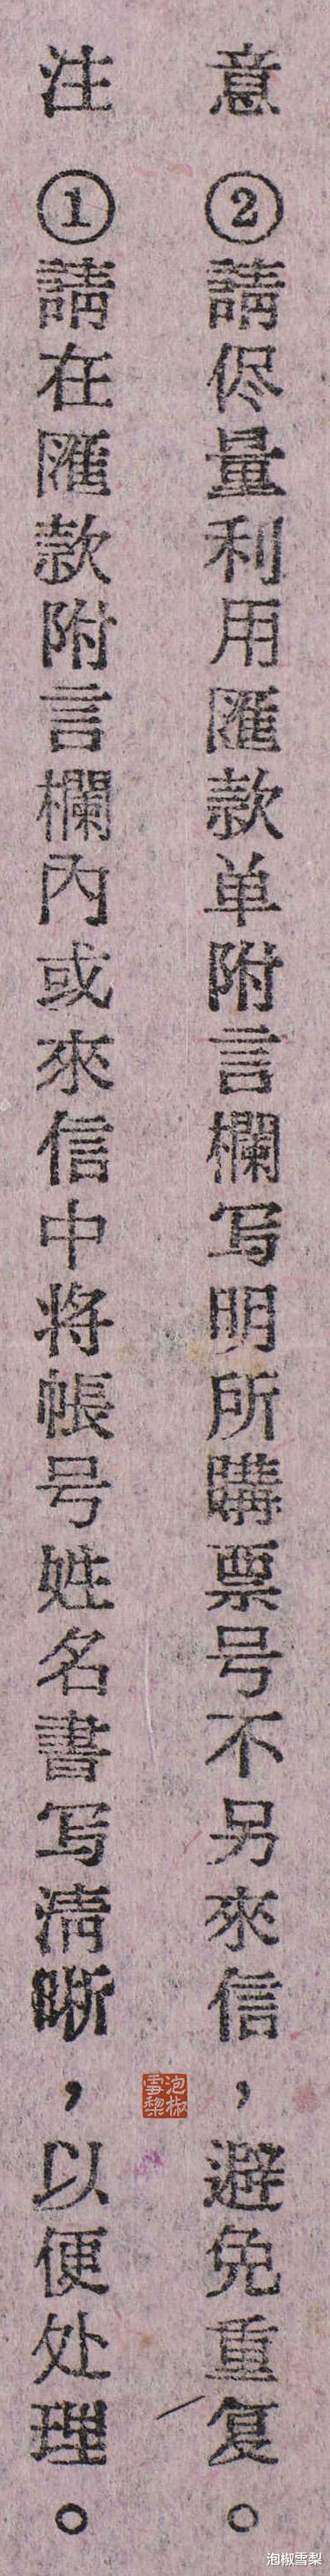 注 ①請在匯款附言欄內或來信中将帳号姓名書写清晰，以便处理。
意 ②請侭量利用匯款单附言欄写明所購票号不另來信，避免重复。
泡椒雪梨
泡椒雪梨